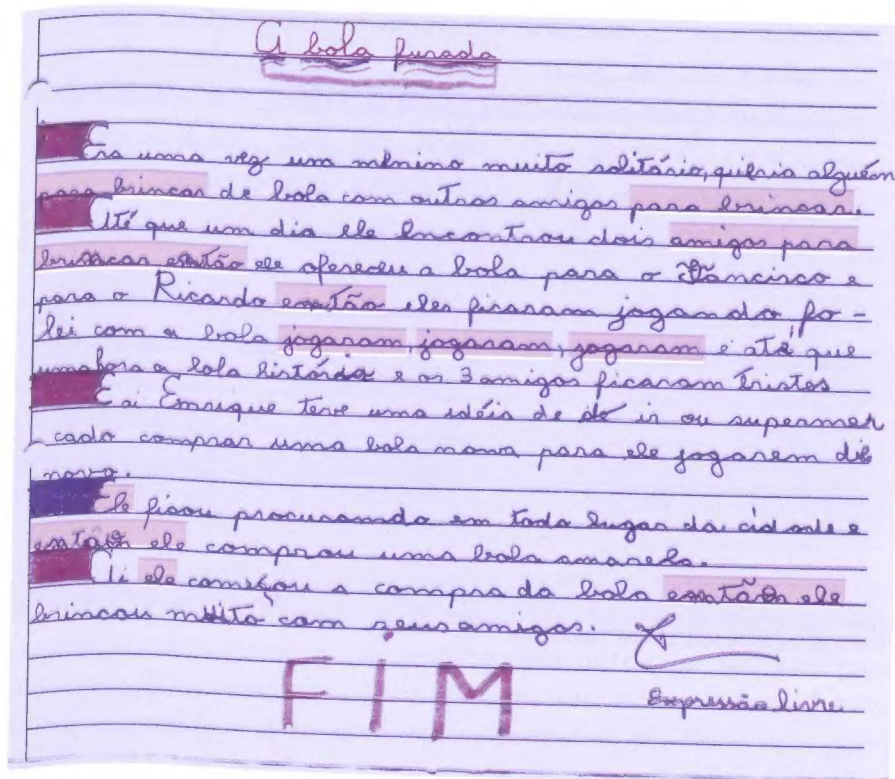 A bola furada
Era uma vez um menino muito solitário, queria alguém
para brincar de bola com outros amigos para brincar.
Até que um dia ele encontrou dois amigos para
brincar então ele ofereceu a bola para o Francisco e
para o Ricardo então eles ficaram jogando fo-
lei com a bola jogaram, jogaram, jogaram e até que
a bola e os 3 amigos ficaram tristes
E ai Enrique teve uma idéia de ir ou supermer
cado comprar uma bola nova para ele jogarem de
novo.
Ele ficou procurando em todo lugar da cidade e
então ele comprou uma bola amarela.
Ai ele começou a compra da bola então ele
brincou muito com seus amigos.
FIM
Expressão livre